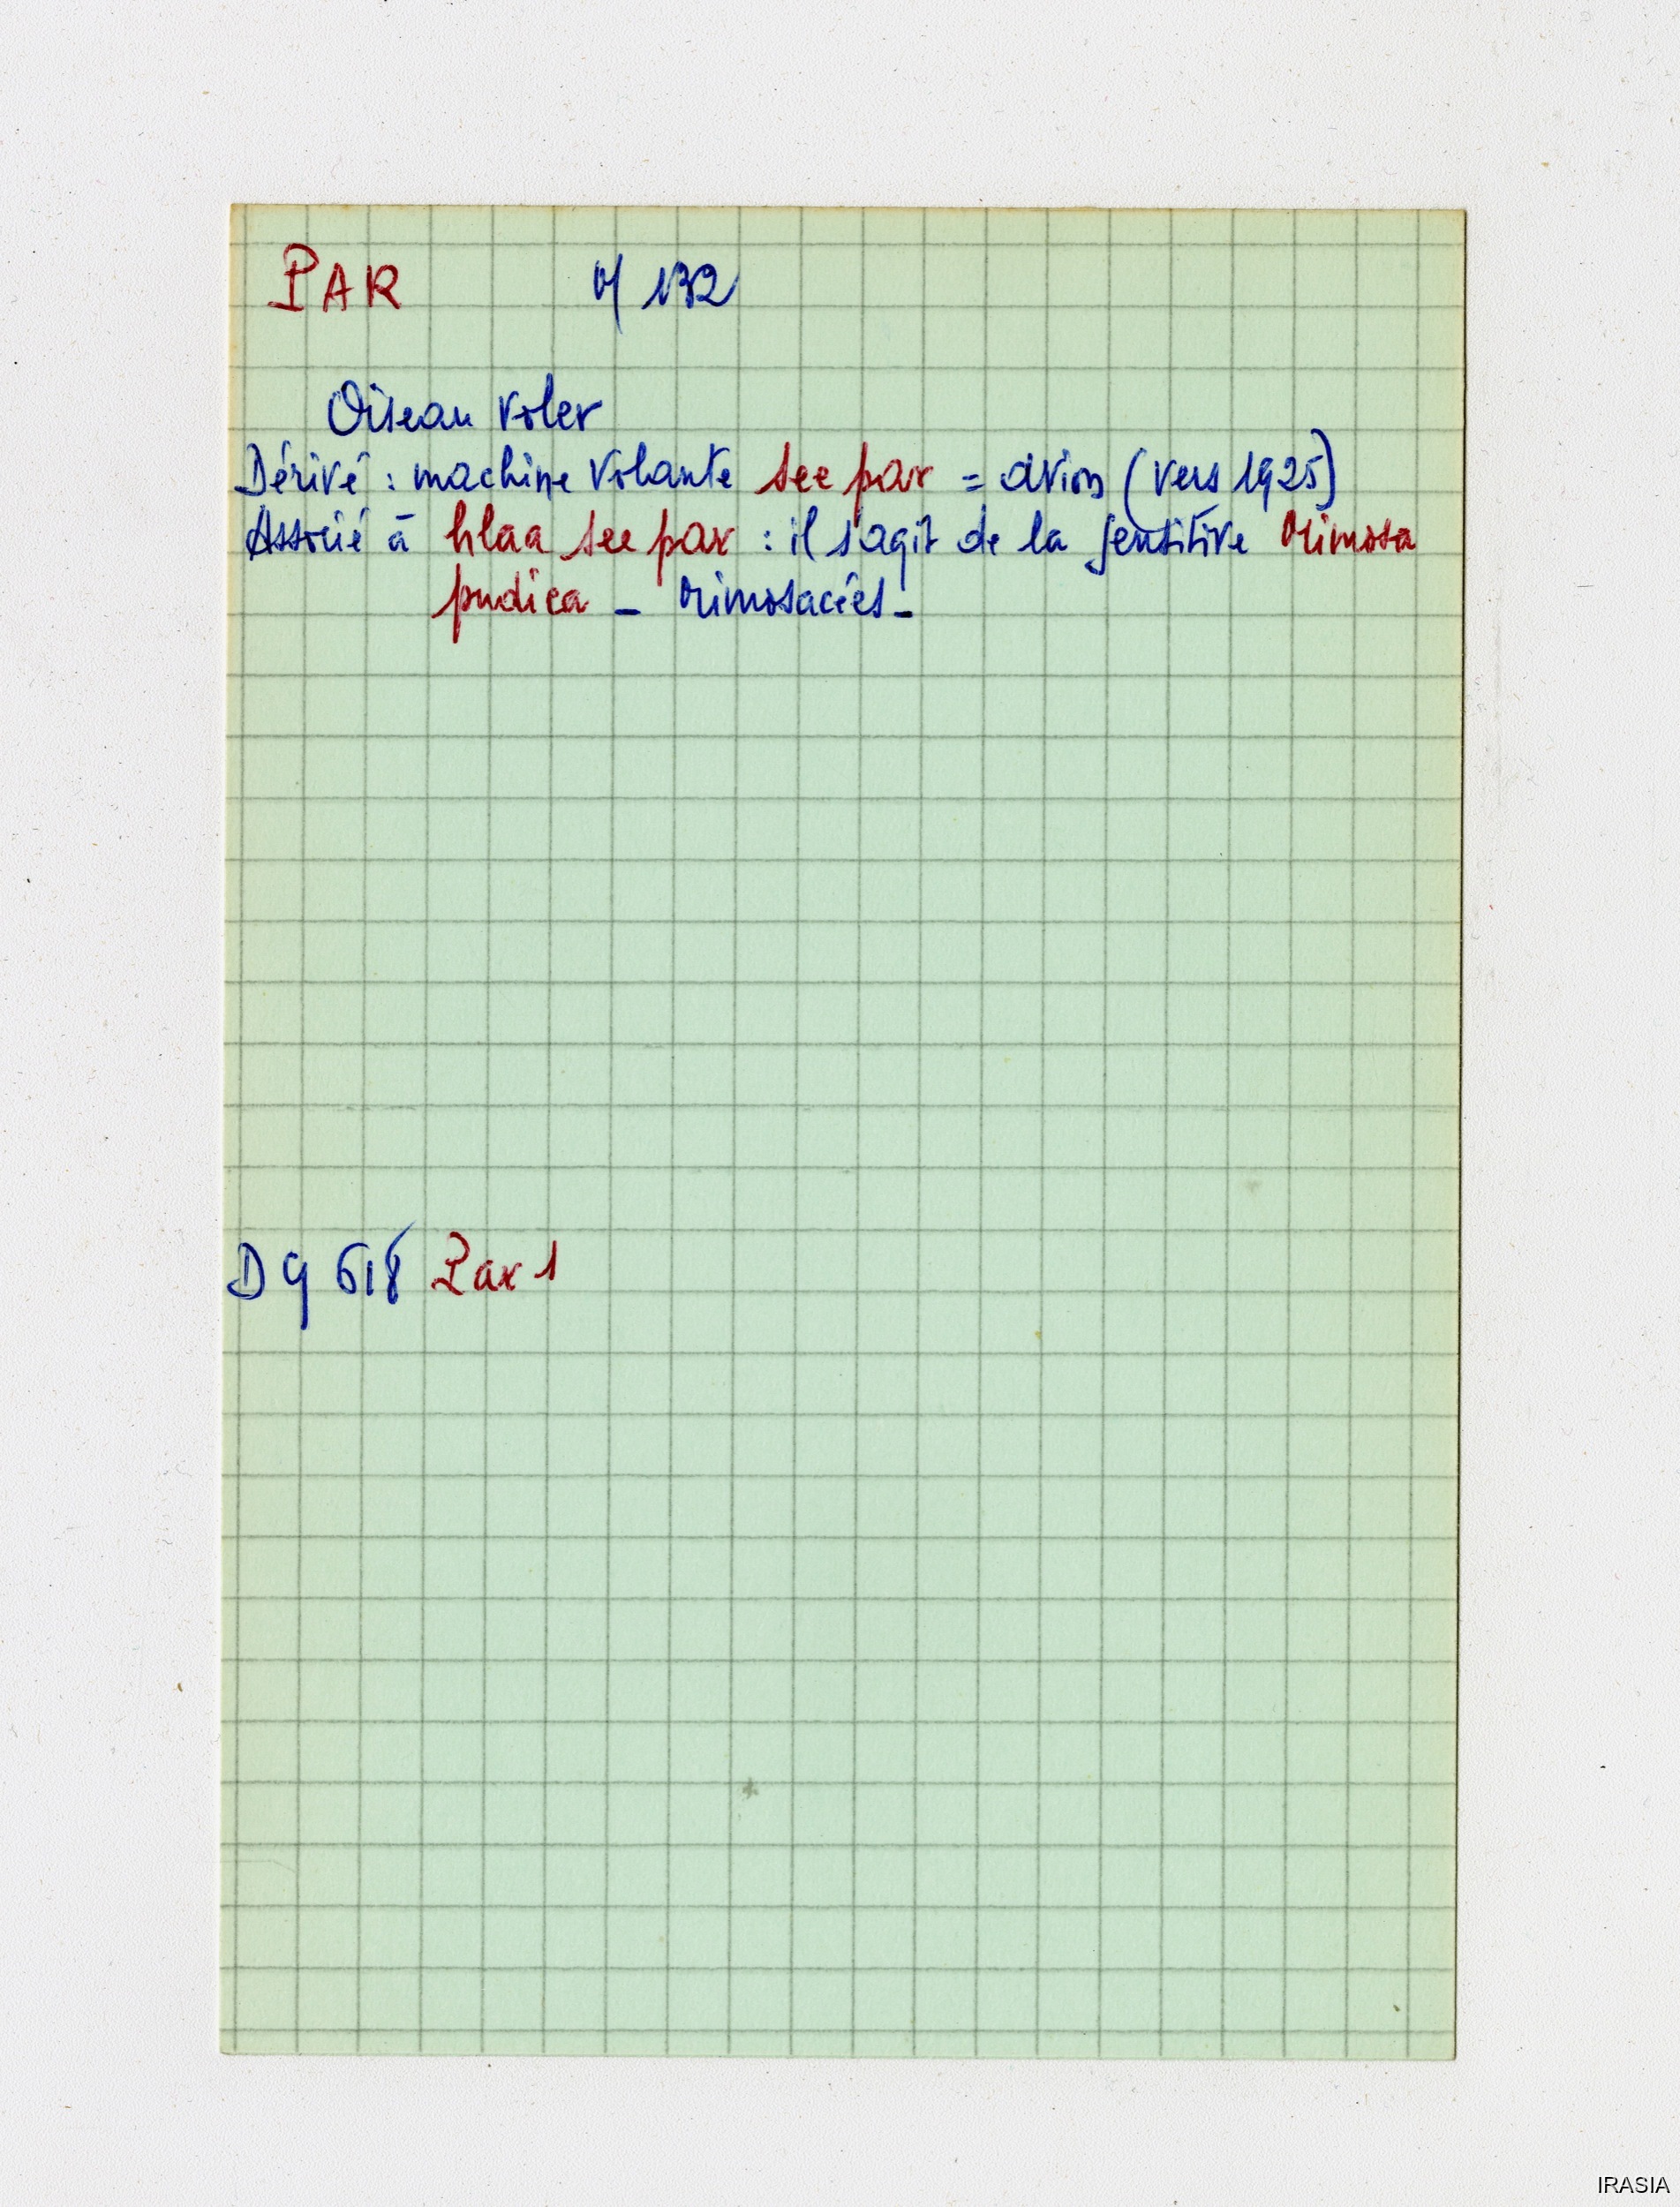 PAR V/ 132
Oiseau voler
Dérivé : machine volante see par = avion (vers 1925)
Associé à hlaa see par : il s'agit de la sensitive Mimosa
pudica - Mimosacées -
D 9 618 Par 1
IRASIA